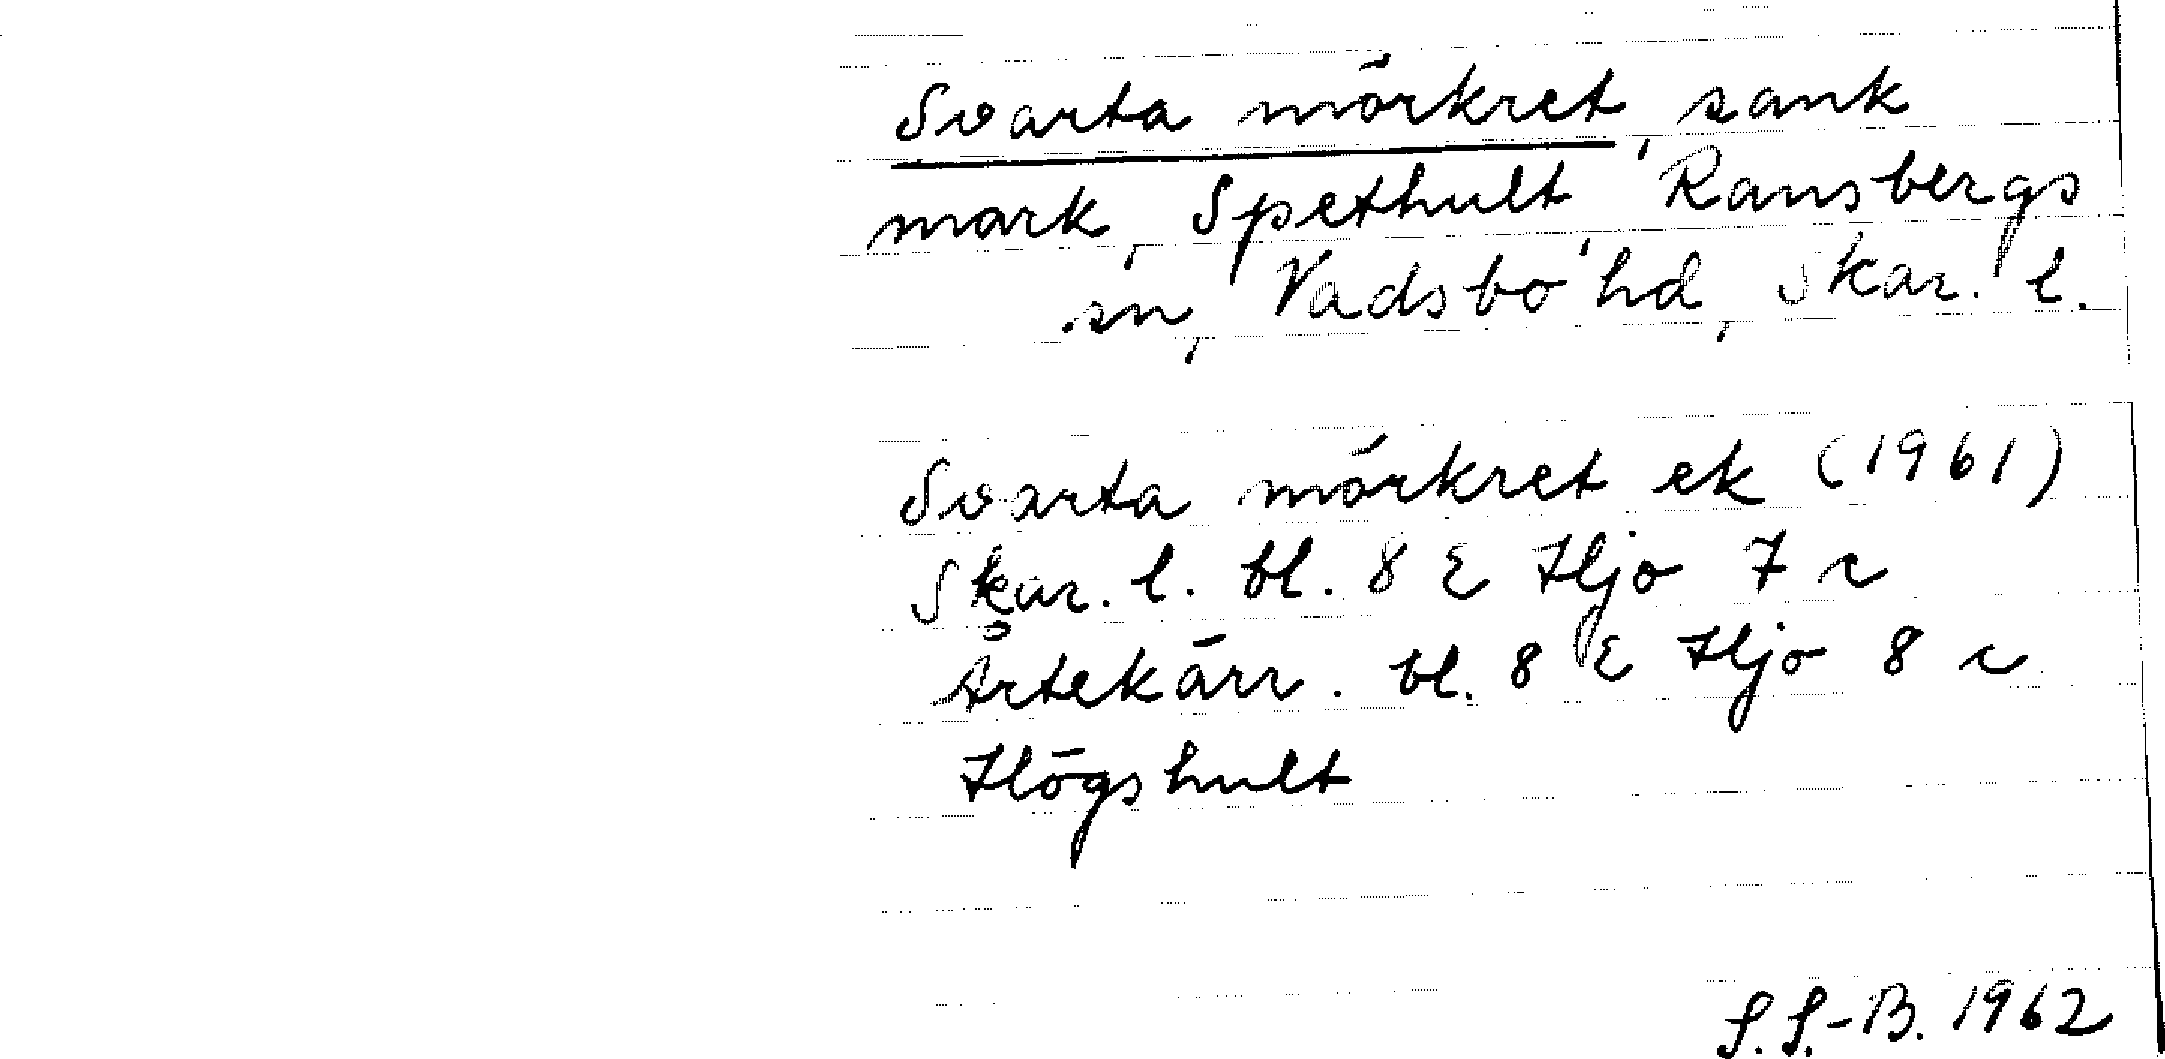 Svarta mörkret, sank
mark, Spethult, Ransbergs
sn, Vadsbo hd, Skar. l.
Svarta mörkret ek (1961)
Skar. l. bl. 8 E Hjo 7 c
Årtekärr. bl. 8 E Hjo 8 c
Högshult
S.S.-B. 1962